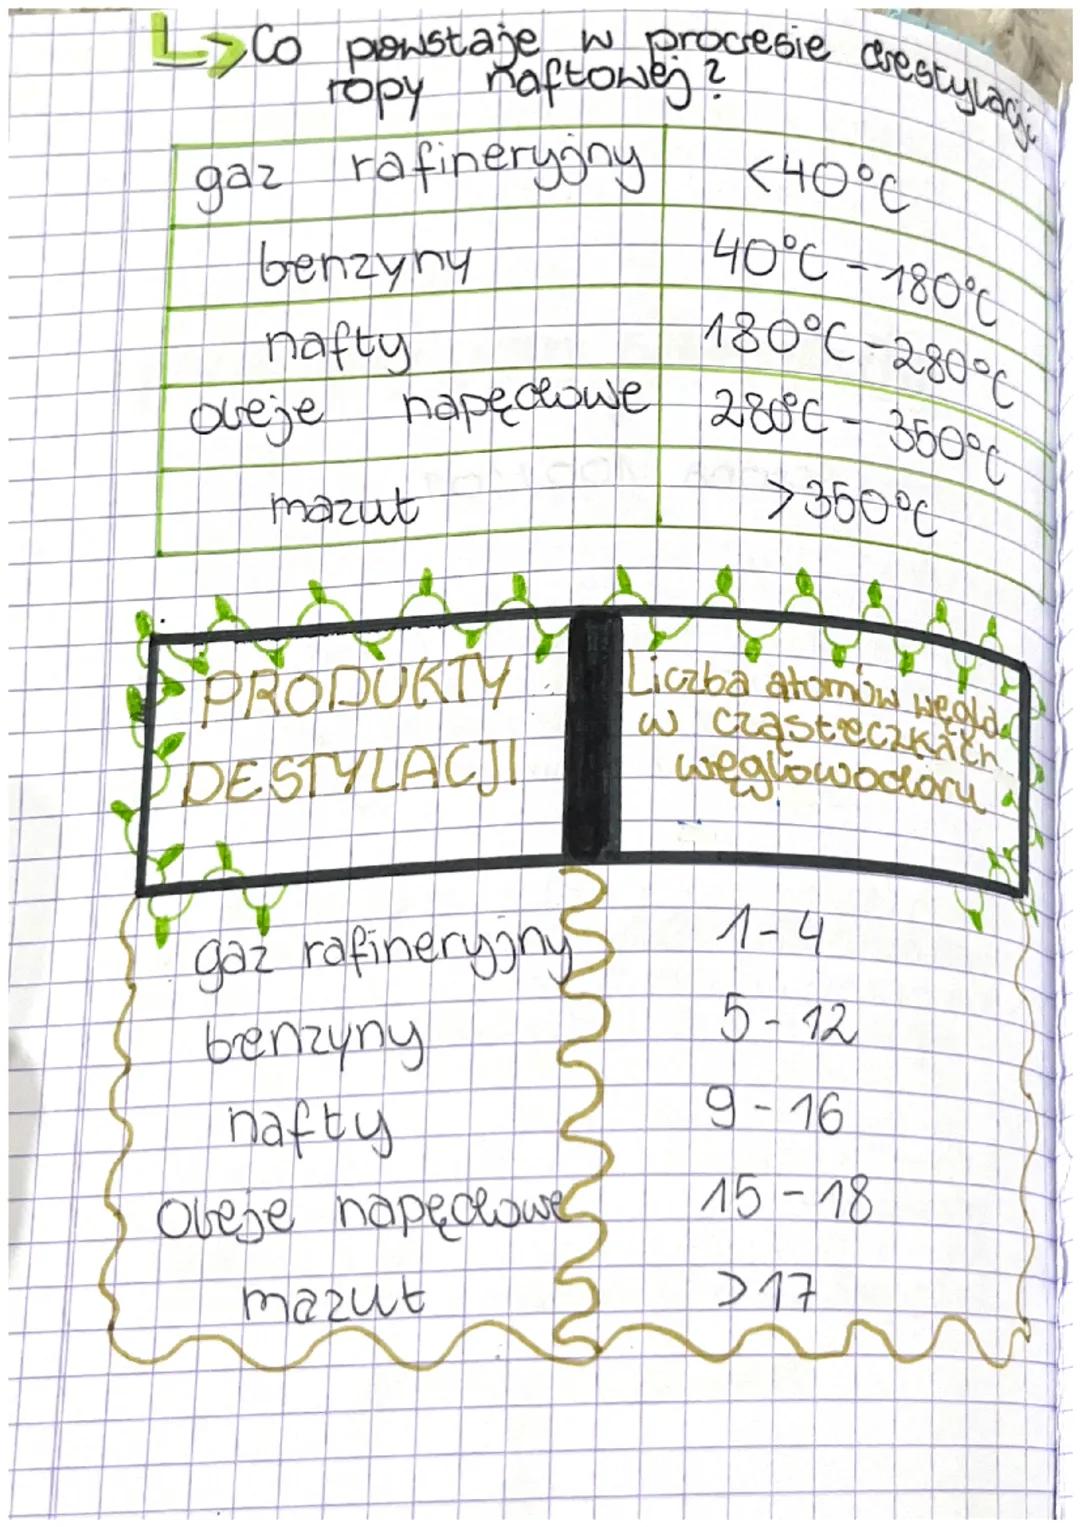 Co powstaje w procesie destylacji
ropy naftowej?
gaz rafineryjny <40°C
benzyny 40°C - 180°C
nafty 180°C - 280°C
oleje napędowe 280°C - 350°C
mazut >350°C
PRODUKTY
DESTYLACJI
Liczba atomów węgla
w cząsteczkach
węglowodoru
gaz rafineryjny 1-4
benzyny 5-12
nafty 9-16
oleje napędowe 15-18
mazut >17